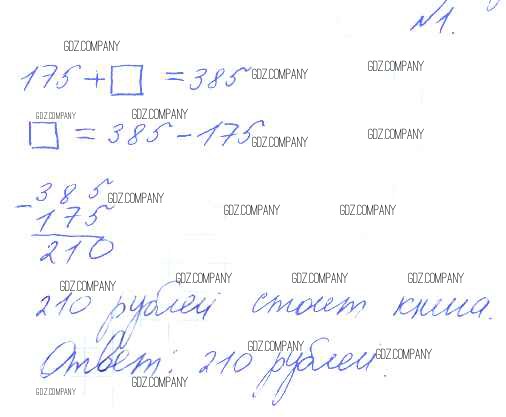 №1.
GDZ.COMPANY
175 + □ = 385 GDZ.COMPANY GDZ.COMPANY
GDZ.COMPANY GDZ.COMPANY
□ = 385 - 175 GDZ.COMPANY GDZ.COMPANY
- 385 GDZ.COMPANY
175 GDZ.COMPANY GDZ.COMPANY
210
GDZ.COMPANY GDZ.COMPANY GDZ.COMPANY GDZ.COMPANY
210 рублей стоит книга.
GDZ.COMPANY GDZ.COMPANY
Ответ: 210 рублей.
GDZ.COMPANY GDZ.COMPANY